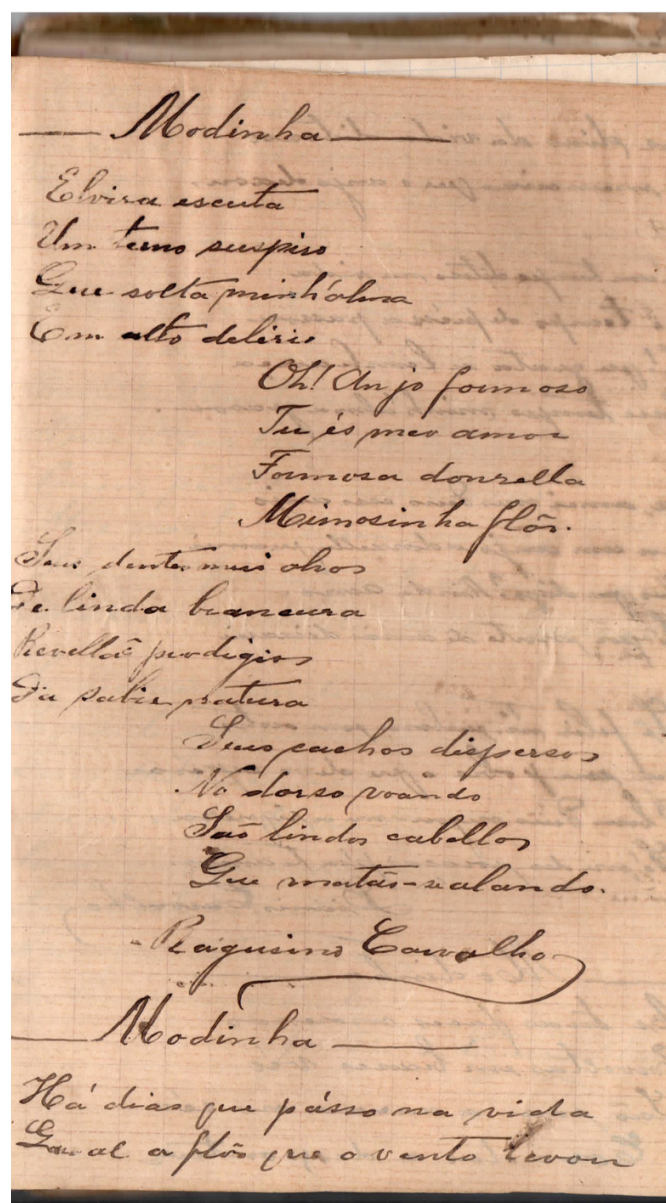 Modinha
Elvira escuta
Um terno suspiro
Que solta minh'alma
Em alto delirio
Oh! Anjo formoso
Tu és meo amor
Formosa donzella
Mimosinha flôr.
Seus dentes mui alvos
De linda brancura
Revellão prodigios
Da sabia natura
Seus cachos dispersos
No dorso voando
São lindos cabellos
Que matão-se alando.
Carvalho
Modinha
Há dias que pásso na vida
Qual a flôr que o vento levou